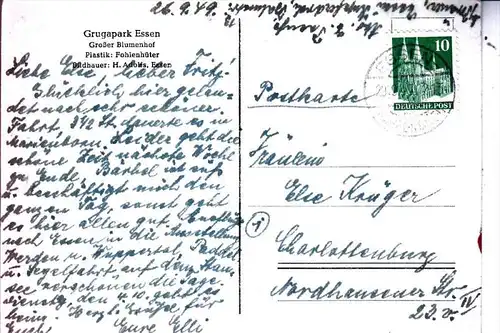 26.9.49.
Grugapark Essen
Großer Blumenhof
Plastik: Fohlenhüter
Bildhauer: H. Adolfs, Essen
Liebe Else, lieber Fritz!
Glücklich hier gelan-
det nach sehr schöner
Fahrt. 3½ St. dauerte es in
Marienborn. Leider geht die
schöne Zeit nächste Woche
zu Ende, Bärbel ist süß
u. beschäftigt mich den
ganzen Tag, sonst geht
es hier allen gut. Ausflüge
nach Essen in die Ausstellung
Werden u. Wuppertal, Paddel
u. Segelfahrt auf dem Stau-
see verschönen die Tage.
Dienstag, den 4.10. geht es
heim. Herzl. Grüße für
Euch! Eure Elli
10
DEUTSCHE POST
Postkarte
Fräulein
Else Krüger
Charlottenburg
Nordhausener Str.
22. v. IV